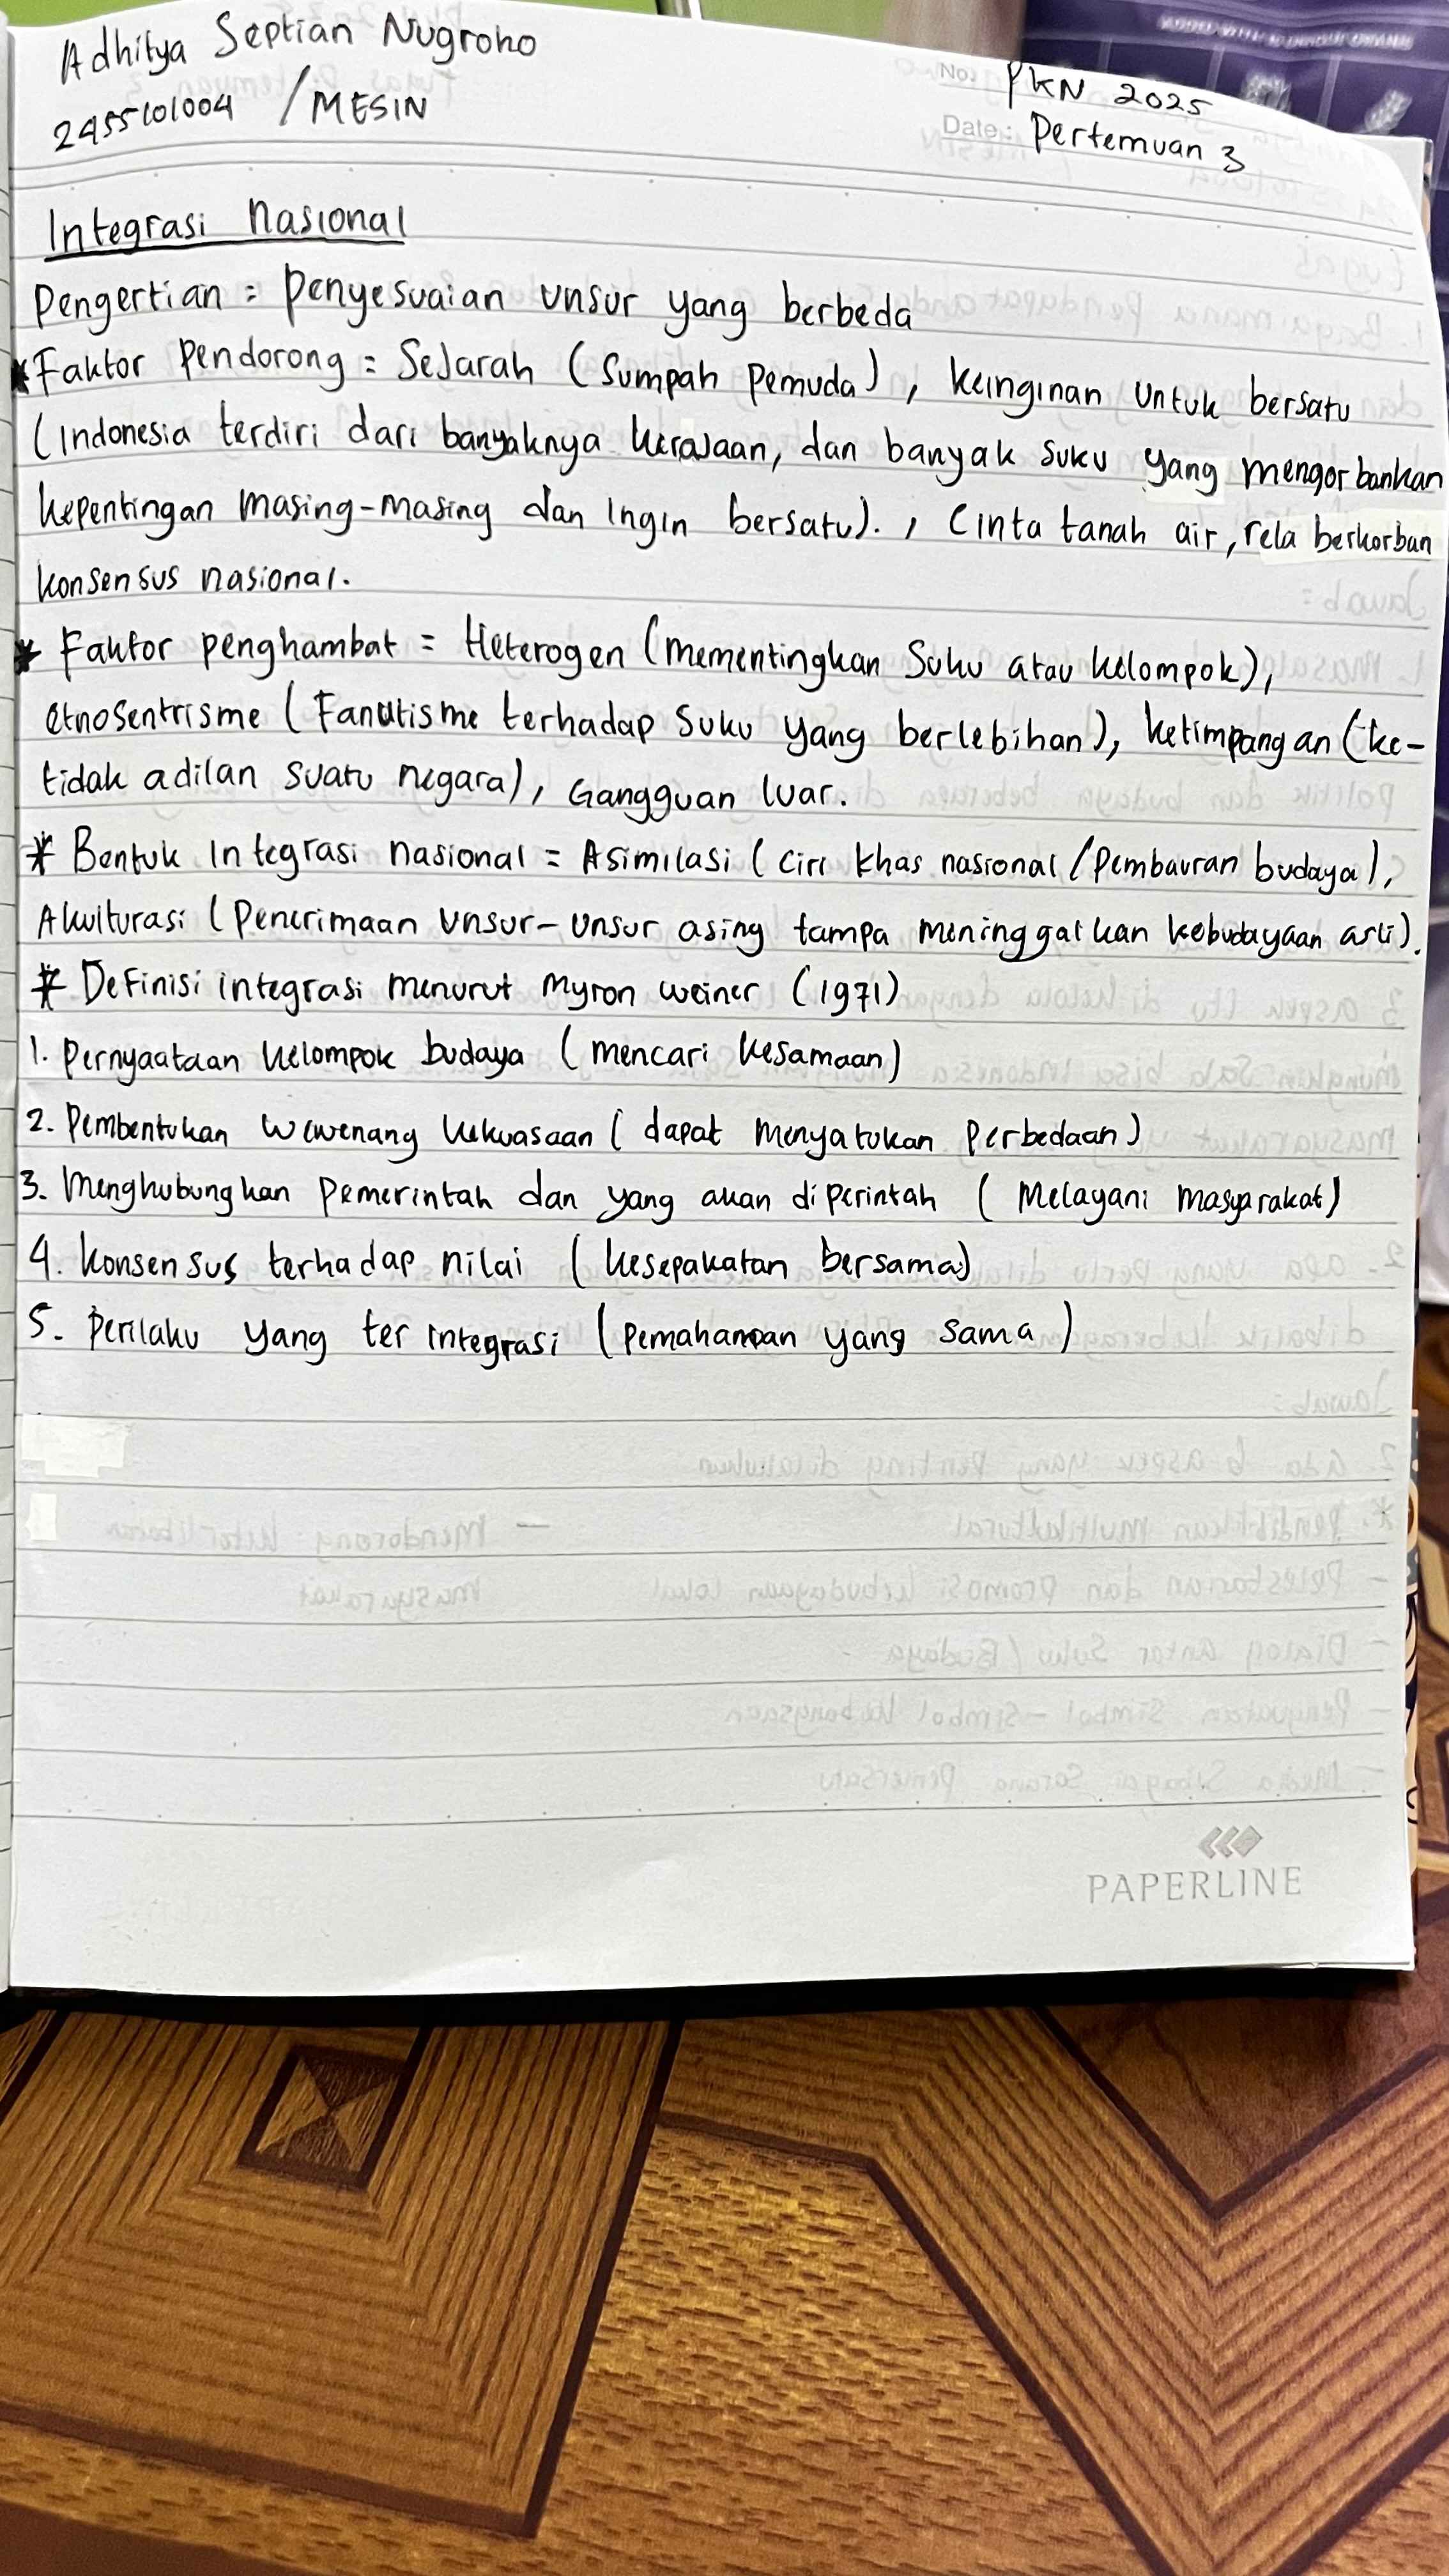 Adhitya Septian Nugroho
2455101004 / MESIN
No: PKN 2025
Date: Pertemuan 3
Integrasi Nasional
Pengertian = Penyesuaian unsur yang berbeda
* Faktor Pendorong = Sejarah (Sumpah Pemuda), keinginan untuk bersatu
(Indonesia terdiri dari banyaknya kerajaan, dan banyak suku yang mengorbankan
kepentingan masing-masing dan ingin bersatu). , Cinta tanah air, rela berkorban
konsensus nasional.
* Faktor penghambat = Heterogen (mementingkan Suku atau kelompok),
etnosentrisme (Fanatisme terhadap suku yang berlebihan), ketimpangan (ke-
tidak adilan suatu negara), Gangguan luar.
* Bentuk Integrasi nasional = Asimilasi (Ciri khas nasional / Pembauran budaya),
Akulturasi (Penerimaan unsur-unsur asing tampa meninggalkan kebudayaan asli).
* Definisi integrasi menurut Myron weiner (1971)
1. Pernyaataan kelompok budaya (mencari kesamaan)
2. Pembentukan wewenang kekuasaan (dapat menyatukan Perbedaan)
3. Menghubungkan Pemerintah dan yang akan diperintah (Melayani masyarakat)
4. Konsensus terhadap nilai (kesepakatan bersama)
5. Perilaku yang ter integrasi (pemahaman yang sama)
PAPERLINE